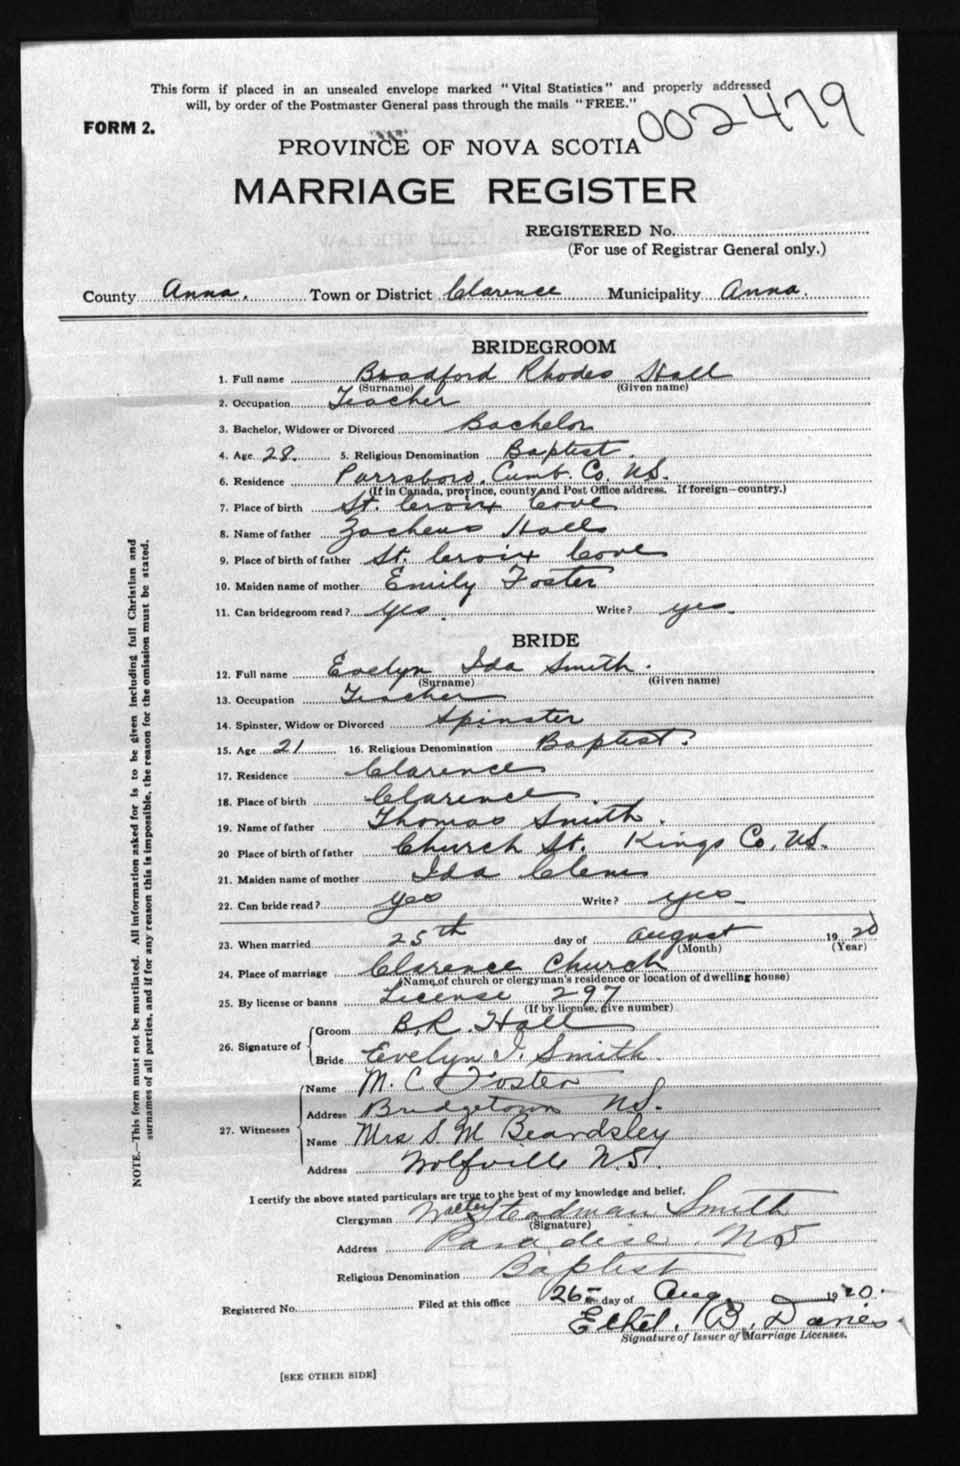 This form if placed in an unsealed envelope marked "Vital Statistics" and properly addressed
will, by order of the Postmaster General pass through the mails "FREE."
002479
FORM 2.
PROVINCE OF NOVA SCOTIA
MARRIAGE REGISTER
REGISTERED No.
(For use of Registrar General only.)
County Anna. Town or District Clarence Municipality Anna.
BRIDEGROOM
1. Full name Bradford Rhodes Hall
(Surname) (Given name)
2. Occupation Teacher
3. Bachelor, Widower or Divorced Bachelor
4. Age 28. 5. Religious Denomination Baptist.
6. Residence Parrsboro, Cumb. Co. N.S.
(If in Canada, province, county and Post Office address. If foreign—country.)
7. Place of birth St. Croix Cove
8. Name of father Zacheus Hall
9. Place of birth of father St. Croix Cove
10. Maiden name of mother Emily Foster
11. Can bridegroom read? yes. Write? yes
BRIDE
12. Full name Evelyn Ida Smith.
(Surname) (Given name)
13. Occupation Teacher
14. Spinster, Widow or Divorced Spinster
15. Age 21 16. Religious Denomination Baptist.
17. Residence Clarence
18. Place of birth Clarence
19. Name of father Thomas Smith.
20 Place of birth of father Church St. Kings Co, N.S.
21. Maiden name of mother Ida
22. Can bride read? yes Write? yes
23. When married 25th day of August 1920
(Month) (Year)
24. Place of marriage Clarence Church
(Name of church or clergyman's residence or location of dwelling house)
25. By license or banns License 297
(If by license, give number)
26. Signature of
Groom B.R. Hall
Bride Evelyn I. Smith.
27. Witnesses
Name M. C. Foster
Address Bridgetown N.S.
Name Mrs S. M Beardsley
Address Wolfville N.S.
I certify the above stated particulars are true to the best of my knowledge and belief.
Clergyman Walter Steadman Smith
(Signature)
Address Paradise, N S
Religious Denomination Baptist
Registered No. Filed at this office 26 day of Aug 1920.
Ethel. B. Davies.
Signature of Issuer of Marriage Licenses.
[SEE OTHER SIDE]
NOTE.—This form must not be mutilated. All information asked for is to be given including full Christian and
surnames of all parties, and if for any reason this is impossible, the reason for the omission must be stated.